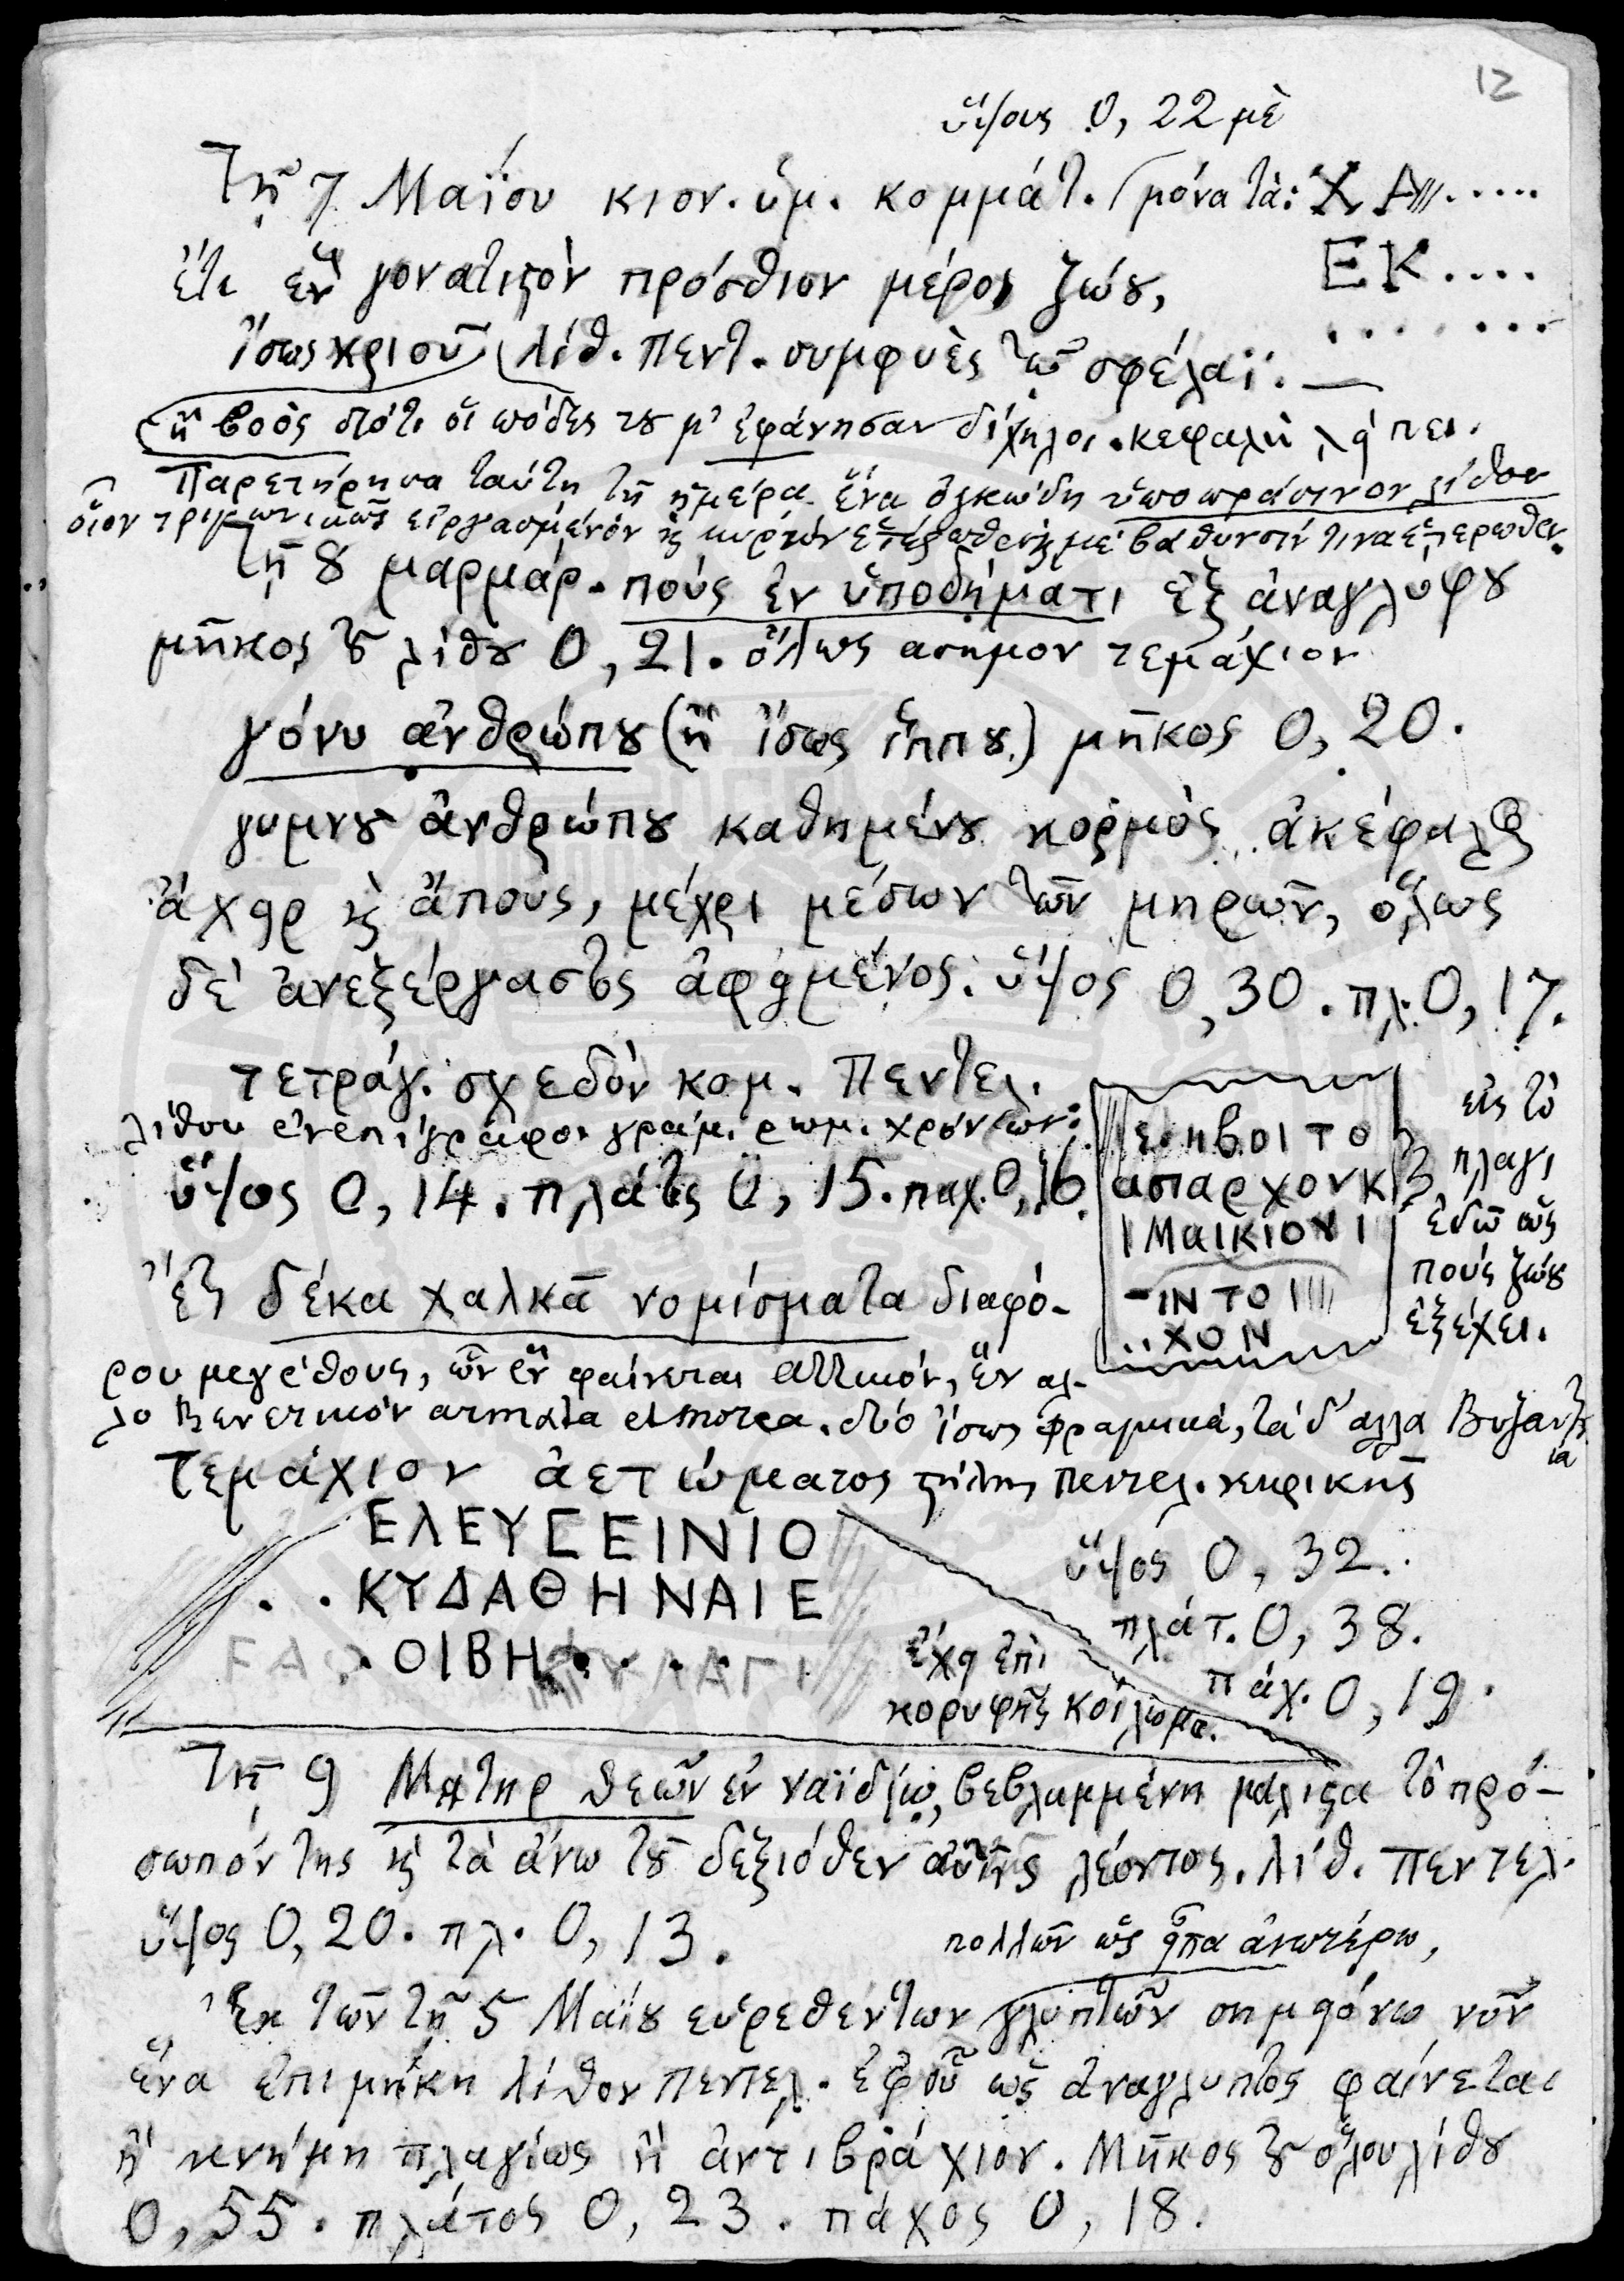 12
ὕψους 0, 22 μὲ
Τῇ 7 Μαΐου κιον. ὑμ. κομμάτ. (μόνα τὰ: Χ Α....
ἔτι ἓν γονατιστὸν πρόσθιον μέρος ζώου, ΕΚ....
ἴσως κριοῦ λίθ. Πεντ. συμφυὲς τῷ σφέλαϊ. —
(ἢ βοὸς διότι οἱ πόδες του μ' ἐφάνησαν δίχηλοι. κεφαλὴ λείπει.
Παρετήρησα ταύτῃ τῇ ἡμέρᾳ ἕνα ὀγκώδη ὑποπράσινον λίθον
οἷον τριγωνικῶς εἰργασμένον καὶ κυρτὸν με βάθυνσίν τινα ἑτέρωθεν.
Τῇ 8 μαρμάρ. ποὺς ἐν ὑποδήματι ἐξ ἀναγλύφου
μῆκος τοῦ λίθου 0, 21. ὅλως ασημον τεμάχιον
γόνυ ἀνθρώπου (ἢ ἴσως ἵππου.) μῆκος 0, 20.
γυμνοῦ ἀνθρώπου καθημένου κορμὸς ἀκέφαλος
ἄχειρ καὶ ἄπους, μέχρι μέσων τῶν μηρῶν, ὅλως
δὲ ἀνεξέργαστος ἀφειμένος. ὕψος 0, 30. πλ. 0, 17.
τετράγ. σχεδὸν κομ. Πεντελ.
λίθου ἐνεπιγράφου γραμ. ρωμ. χρόνων:
ὕψος 0, 14. πλάτος 0, 15. παχ. 0, 16.
ε.ηβοι το
απαρχονκ
Μαικιου
-ΙΝ ΤΟ
..ΧΟΝ
εἰς τὸ
πλάγι
ἐδῶ ὡς
ποὺς ζώου
ἐξέχει.
Ἔτι δέκα χαλκᾶ νομίσματα διαφό-
ρου μεγέθους, ὧν ἓν φαίνεται Αττικόν, ἓν αλ-
λο Βενετικὸν armata et morea. δύο ἴσως φραγκικά, τὰ δ' αλλα Βυζαντι
να
Τεμάχιον ἀετώματος στήλης Πεντελ. νεκρικῆς
ΕΛΕΥΣΕΙΝΙΟ
. . ΚΥΔΑΘΗΝΑΙΕ
. ΟΙΒΗ . . . .
ὕψος 0, 32.
πλάτ. 0, 38.
πάχ. 0, 19.
ἔχει ἐπὶ
κορυφῆς κοίλωμα.
Τῇ 9 Μήτηρ θεῶν ἐν ναϊδίῳ, βεβλαμμένη μάλιστα τὸ πρό-
σωπόν της καὶ τὰ ἄνω τοῦ δεξιόθεν αὐτῆς λέοντος. λίθ. Πεντελ.
ὕψος 0, 20. πλ. 0, 13.
πολλῶν ὡς εἶπα ἀνωτέρω,
Ἐκ τῶν τῇ 5 Μαΐου εὑρεθέντων γλυπτῶν σημειόνω νῦν
ἕνα ἐπιμήκη λίθον Πεντελ. ἐφ' οὗ ὡς ἀναγλυπτος φαίνεται
ἢ κνήμη πλαγίως ἢ ἀντιβράχιον. Μῆκος τοῦ ὅλου λίθου
0, 55. πλάτος 0, 23. πάχος 0, 18.